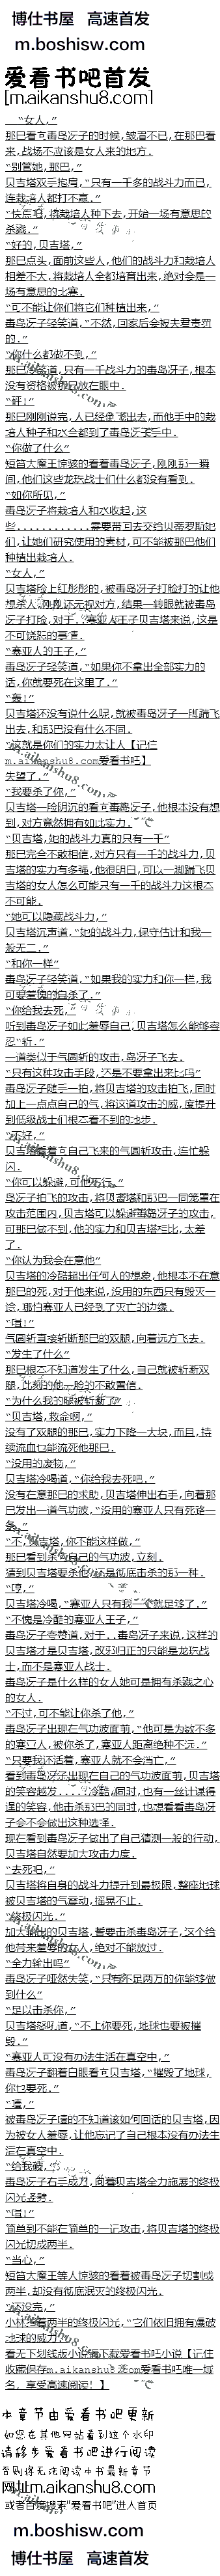 博仕书屋 高速首发
m.boshisw.com
爱看书吧首发
[maikanshu8.com]
“女人,”
那巴看着毒岛冴子的时候,皱眉不已,在那巴看
来,战场不应该是女人来的地方.
“别管她,那巴,”
贝吉塔双手抱胸,“只有一千多的战斗力而已,
连栽培人都打不赢.”
“快点吧,将栽培人种下去,开始一场有意思的
杀戮.”
“好的,贝吉塔,”
那巴点头,面前这些人,他们的战斗力和栽培人
相差不大,将栽培人全都培育出来,绝对会是一
场有意思的比赛.
“可不能让你们将它们种植出来,”
毒岛冴子轻笑道,“不然,回家后会被夫君责罚
的.”
“你什么都做不到,”
那巴冷笑道,只有一千战斗力的毒岛冴子,根本
没有资格被那巴放在眼中.
那巴刚刚说完,人已经倒飞出去,而他手中的栽
培人种子和水合都到了毒岛冴子手中.
“你做了什么”
短笛大魔王惊骇的看着毒岛冴子,刚刚那一瞬
间,他们这些龙珠战士们什么都没有看到.
“如你所见,”
毒岛冴子将栽培人和水收起,这
些............需要带回去交给贝蒂罗斯她
们,让她们研究使用的素材,可不能被那巴他们
种植出栽培人.
“女人,”
贝吉塔脸上红彤彤的,被毒岛冴子打脸打的让他
想杀人,刚刚还无视对方,结果一转眼就被毒岛
冴子打脸,对于..赛亚人王子贝吉塔来说,这是
不可饶恕的事情.
“赛亚人的王子,”
毒岛冴子轻笑道,“如果你不拿出全部实力的
话,你就要死在这里了.”
“轰!”
贝吉塔还没有说什么呢,就被毒岛冴子一脚踹飞
出去,和那巴没有什么不同.
“这就是你们的实力太让人【记住
m.aikanshu8.com爱看书吧】
失望了.”
“我要杀了你,”
贝吉塔一脸阴沉的看着毒岛冴子,他根本没有想
到,对方竟然拥有如此实力.
“贝吉塔,她的战斗力真的只有一千”
那巴完全不敢相信,对方只有一千的战斗力,贝
吉塔的实力有多强,他很明白,可以一脚踹飞贝
吉塔的女人怎么可能只有一千的战斗力这根本
不可能.
“她可以隐藏战斗力,”
贝吉塔沉声道,“她的战斗力,保守估计和我一
般无二.”
“和你一样”
毒岛冴子轻笑道,“如果我的实力和你一样,我
可要羞愧的自杀了.”
“你给我去死,”
听到毒岛冴子如此羞辱自己,贝吉塔怎么能够容
忍“斩.”
一道类似于气圆斩的攻击,岛冴子飞去.
“只有这种攻击手段,还是不要拿出来比吗”
毒岛冴子随手一拍,将贝吉塔的攻击拍飞,同时
加上一点点自己的气,将这道攻击的威,度提升
到低级战士们根本看不到的地步.
“不好,”
贝吉塔看着向自己飞来的气圆斩攻击,连忙躲
闪.
“你可以躲避,可他不行,”
岛冴子拍飞的攻击,将贝吉塔和那巴一同笼罩在
攻击范围内,贝吉塔可以躲避毒岛冴子的攻击,
可那巴做不到,他的实力和贝吉塔相比,太差
了.
“你认为我会在意他”
贝吉塔的冷酷超出任何人的想象,他根本不在意
那巴的死,对于他来说,没用的东西只有毁灭一
途,哪怕赛亚人已经到了灭亡的边缘.
“嗤!”
气圆斩直接斩断那巴的双腿,向着远方飞去.
“发生了什么”
那巴根本不知道发生了什么,自己就被斩断双
腿,此刻的他一脸的不敢置信.
“为什么我的腿被斩断了”
“贝吉塔,救命啊,”
没有了双腿的那巴,实力下降一大块,而且,持
续流血也能流死他那巴.
“没用的废物,”
贝吉塔冷喝道,“你给我去死吧.”
没有在意那巴的求助,贝吉塔伸出右手,向着那
巴发出一道气功波,“没用的赛亚人只有死路一
条.”
“不,贝吉塔,你不能这样做,”
那巴看到杀向自己的气功波,立刻.
猜到贝吉塔要杀他,还是彻底击杀的那一种.
“哼,”
贝吉塔冷喝,“赛亚人只有我一个就足够了.”
“不愧是冷酷的赛亚人王子,”
毒岛冴子夸赞道,对于..毒岛冴子来说,这样的
贝吉塔才是贝吉塔,改邪归正的只能是龙珠战
士,而不是赛亚人战士.
毒岛冴子是什么样的女人她可是拥有杀戮之心
的女人.
“不过,可不能让你杀了他,”
毒岛冴子出现在气功波面前,“他可是为数不多
的赛亚人,被你杀了,赛亚人距离绝种不远.”
“只要我还活着,赛亚人就不会消亡,”
看到毒岛冴子出现在自己的气功波面前,贝吉塔
的笑容越发.....冷酷,同时,也有一丝计谋得
逞的笑容,他击杀那巴的同时,也想看看毒岛冴
子会不会做出这种选择.
现在看到毒岛冴子做出了自己猜测一般的行动,
贝吉塔自然要加大攻击力度.
“去死吧,”
贝吉塔将自身的战斗力提升到最极限,整座地球
被贝吉塔的气撼动,摇晃不止.
“终极闪光.”
加大输出的贝吉塔,誓要击杀毒岛冴子,这个给
他带来羞辱的女人,绝对不能放过.
“全力输出吗”
毒岛冴子哑然失笑,“只有不足两万的你能够做
到什么”
“足以击杀你,”
贝吉塔怒吼道,“不止你要死,地球也要被摧
毁.”
“赛亚人可没有办法生活在真空中,”
毒岛冴子翻着白眼看向贝吉塔,“摧毁了地球,
你也要死.”
“噎,”
被毒岛冴子噎的不知道该如何回话的贝吉塔,因
为被女人羞辱,让他忘记了自己根本没有办法生
活在真空中.
“给我破,”
毒岛冴子右手成刀,向着贝吉塔全力施展的终极
闪光竖劈.
“嗤!”
简单到不能在简单的一记攻击,将贝吉塔的终极
闪光切成两半.
“当心,”
短笛大魔王等人惊骇的看着被毒岛冴子切割成
两半,却没有彻底泯灭的终极闪光.
“还没完,”
小林看着两半的终极闪光,“它们依旧拥有爆破
地球的威力.”
看无下划线版小说请下载爱看书吧小说【记住
收藏保存m.aikanshu8.com爱看书吧唯一域
名, 享受高速阅读! 】
本章节由爱看书吧更新
如您在其他网站看到这个水印
请移步爱看书吧进行阅读
否则将无法阅读本书最新章节
网址m.aikanshu8.com
或者百度搜索“爱看书吧”进入首页
m.boshisw.com
博仕书屋 高速首发